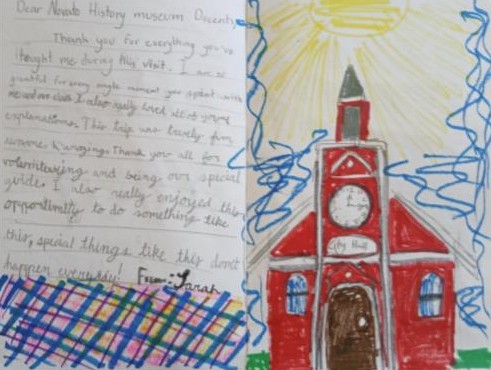 Dear Novato History museum Docents,
Thank you for everything you've
thought me during this visit. I am so
grateful for every single moment you spent with
me and our class. I also really loved all of your
explanations. This trip was
Thank you all for
volunteering and being our special
guide. I also really enjoyed this
opportunity to do something like
this, special things like this don't
happen everyday! From: Sarah
City Hall